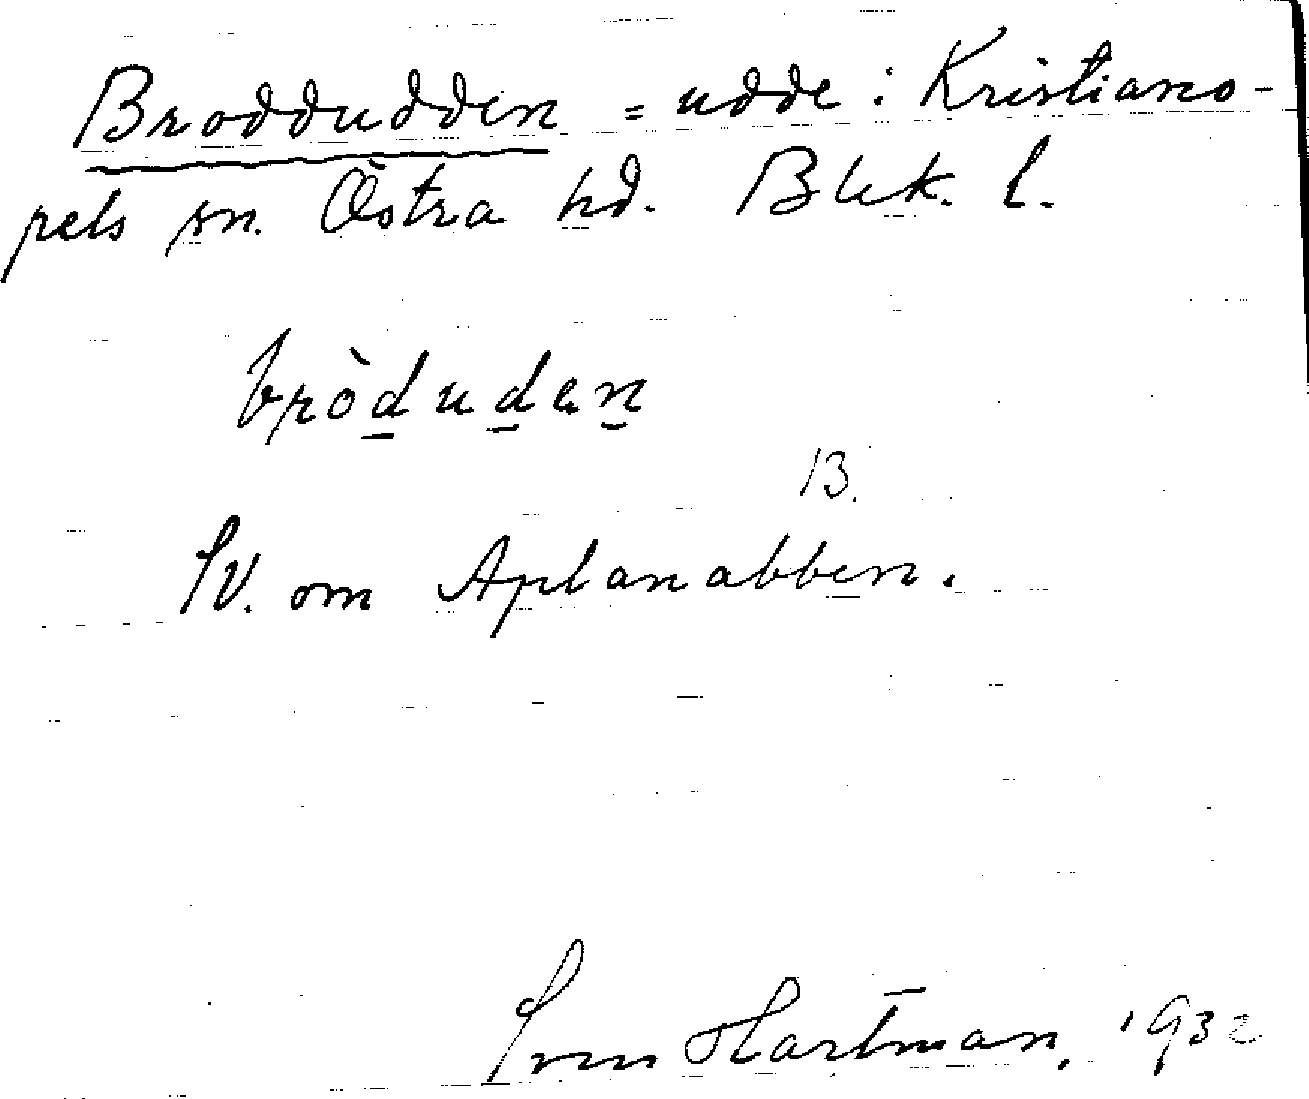 Broddudden = udde i Kristiano-
pels sn. Östra hd. Blek. l.
bròdudan
13.
SV. om Aplanabben.
Sven Hartman, 1932